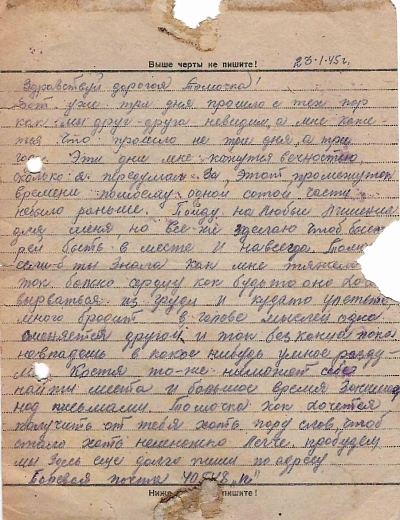 Выше черты не пишите!
23-1.45г.
Здравствуй дорогая Томочка!
Вот уже три дня прошло с тех пор
как мы друг-друга невидим, а мне каже-
тся что прошло не три дня, а три
Эти дни мне кажутся вечностью,
сколько я передумал За, этот промежуток
времени помоему одной сотой части
небыло раньше. Пойду на любые лишения
для меня, но все-же зделаю чтоб
рей быть в месте и навсегда.
если-б ты знала как мне
так больно сердцу как будьто оно
вырваться из груди и кудато улететь
много бродит в голове мыслей одна
сменяется другой и так без конца пока
невпадешь в какое нибудь умное разду-
Костя то-же неможет себе
найти места и большое время
над письмами. Томочка как хочется
получить от тебя хоть пару слов, чтоб
стало хоть немножко легче, пробудем
мы здесь еще долго пиши по адресу
Полевая почта 40548 "п"
Ниже пишите!